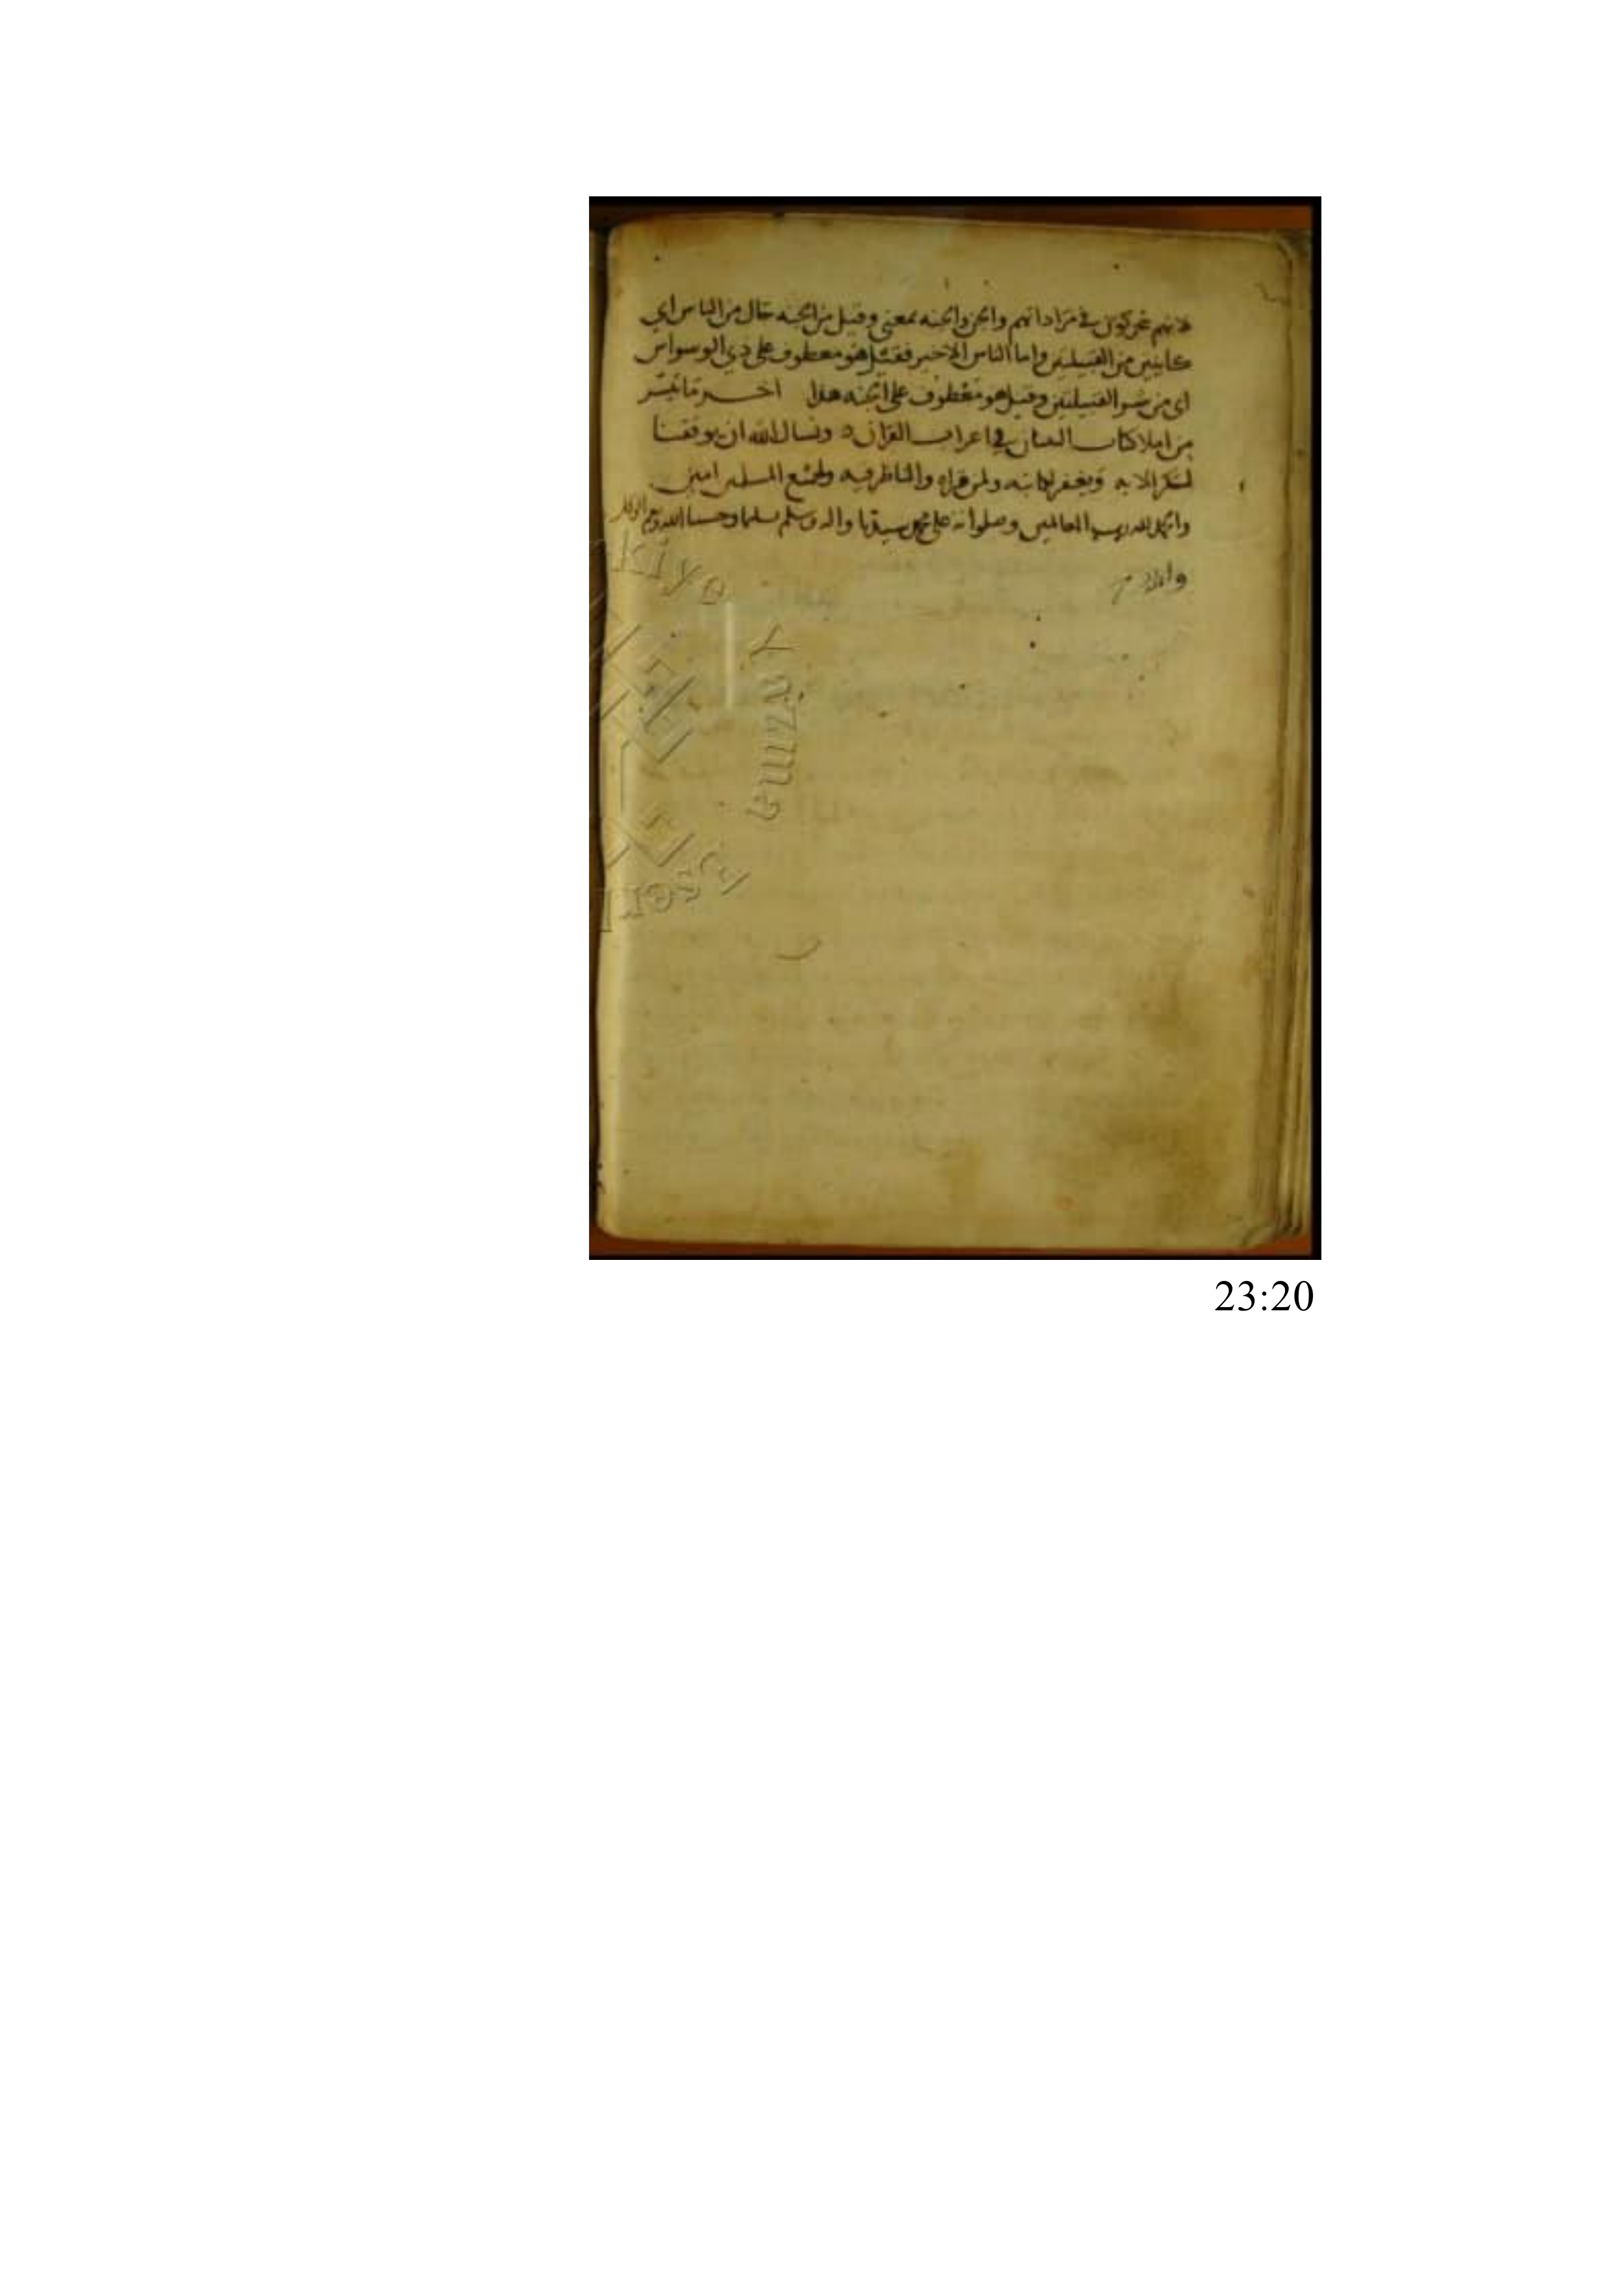 لانهم يتحركون في مراداتهم والجن والجنه بمعني وقيل من الجنه حال من الناس اي
كاينين من القبيلتين واما الناس الاخير فقيل هو معطوف على ذي الوسواس
اي من شر القبيلتين وقيل هو معطوف على الجنه هذا اخر ما تيسر
من املا كتاب التبيان في اعراب القران ونسال الله ان يوفقنا
لشكر الايه ويغفر لكاتبه ولمن قراه والناظر فيه ولجميع المسلمين امين
والحمد لله رب العالمين وصلواته على محمد سيدنا واله وسلم تسليما وحسبنا الله ونعم الوكيل
Türkiye
Yazma
Eserl
23:20